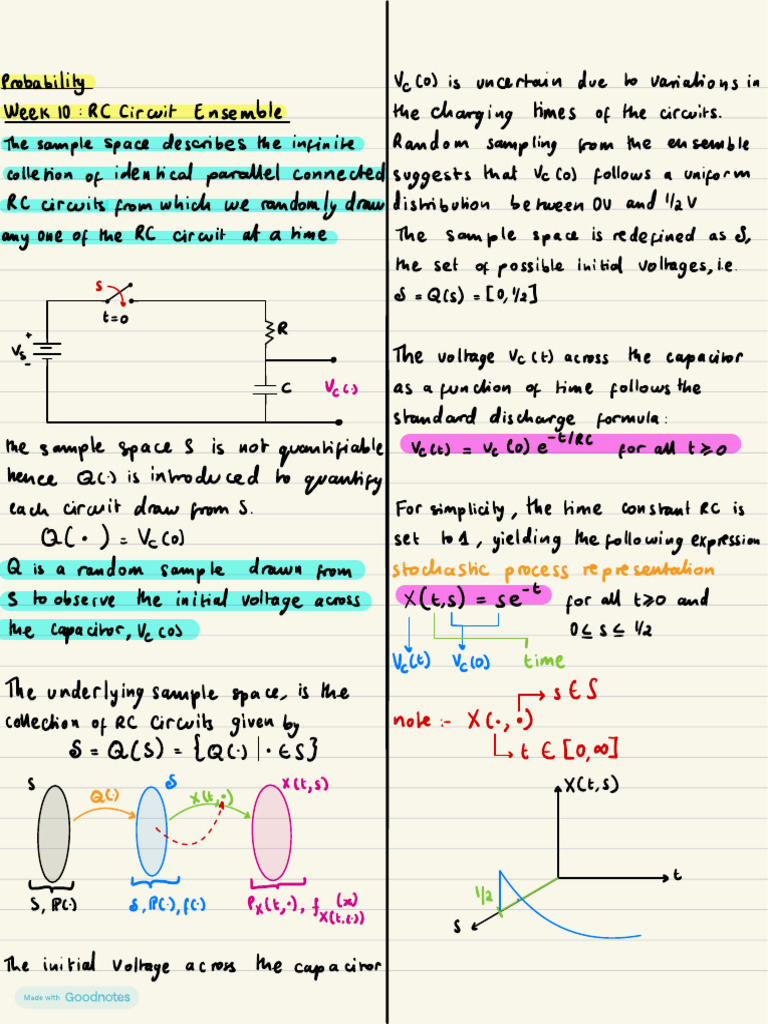 Probability
Week 10 : RC Circuit Ensemble
The sample space describes the infinite
colletion of identical parallel connected
RC circuits from which we randomly draw
any one of the RC circuit at a time
S
t=0
+
Vs
-
R
C
Vc(·)
The sample space S is not quantifiable
hence Q(·) is introduced to quantify
each circuit draw from S.
Q(·) = Vc(0)
Q is a random sample drawn from
S to observe the initial voltage across
the capacitor, Vc(0)
The underlying sample space, is the
collection of RC circuits given by
𝒮 = Q(S) = {Q(·) | · ∈ S}
S
Q(·)
𝒮
X(t,·)
X(t,s)
S, P(·)
𝒮, P(·), f(·)
P_X(t,·), f_X(t,(·)) (x)
The initial voltage across the capacitor
Vc(0) is uncertain due to variations in
the charging times of the circuits.
Random sampling from the ensemble
suggests that Vc(0) follows a uniform
distribution between 0V and 1/2 V
The sample space is redefined as 𝒮,
the set of possible initial voltages, i.e.
𝒮 = Q(s) = [0, 1/2]
The voltage Vc(t) across the capacitor
as a function of time follows the
standard discharge formula:
Vc(t) = Vc(0) e^-t/RC for all t ≥ 0
For simplicity, the time constant RC is
set to 1, yielding the following expression
stochastic process representation
X(t,s) = se^-t for all t ≥ 0 and
0 ≤ s ≤ 1/2
Vc(t) Vc(0) time
s ∈ 𝒮
note :- X(·,·)
t ∈ [0,∞]
X(t,s)
t
1/2
S
Made with Goodnotes